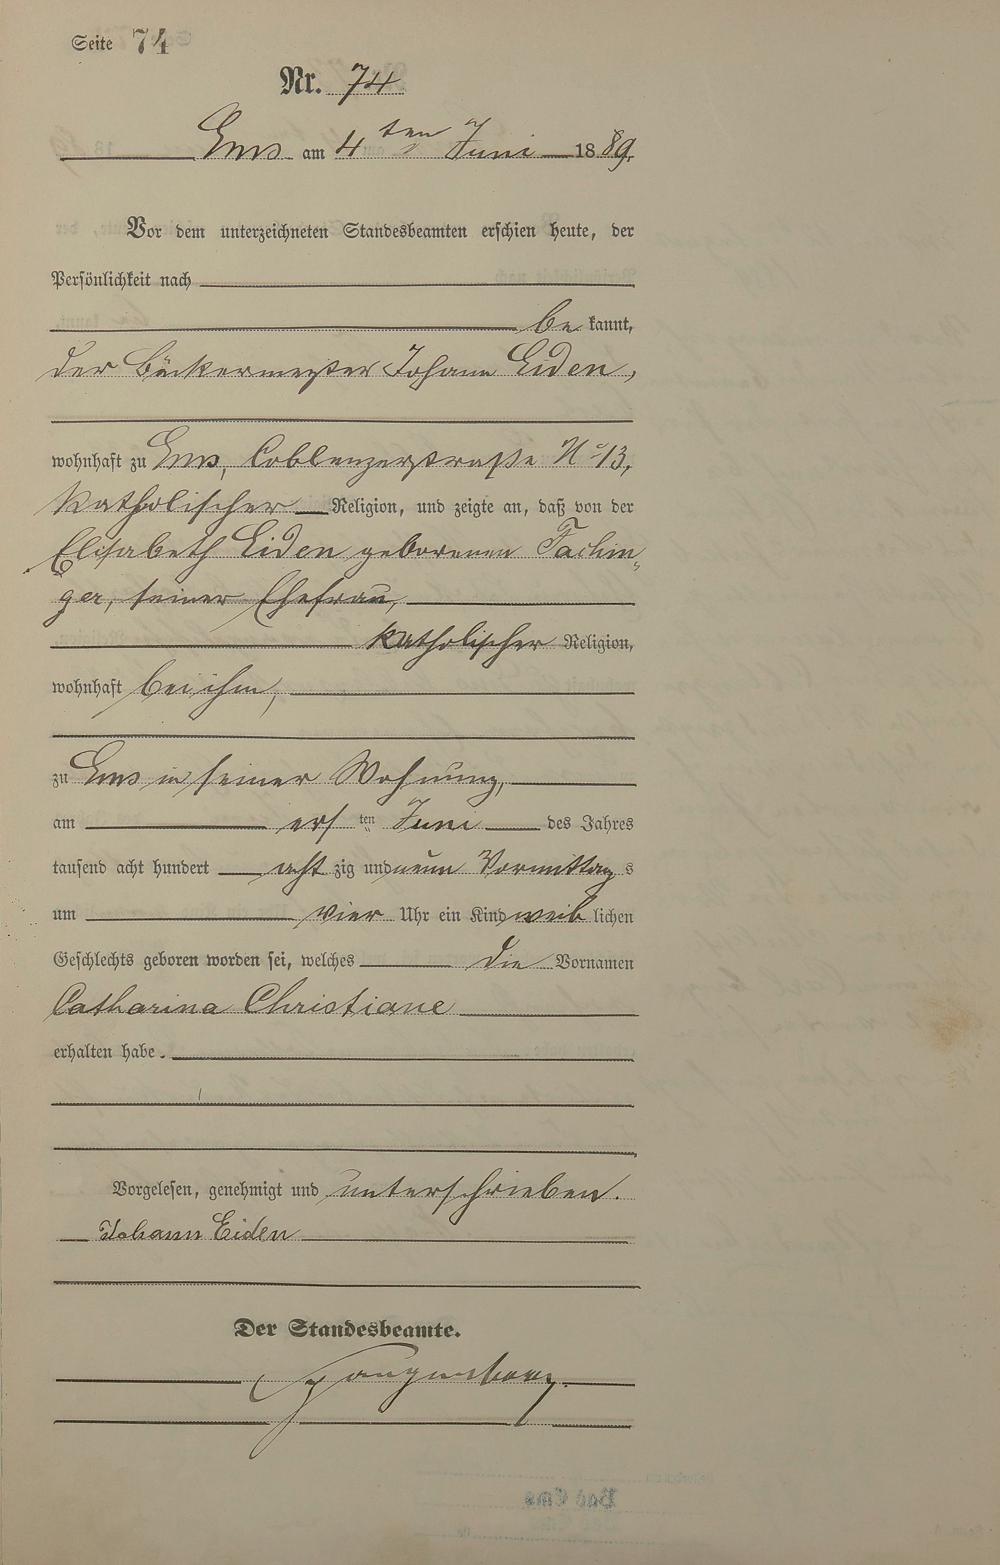 Seite 74
Nr. 74
Ems am 4ten Juni 1889.
Vor dem unterzeichneten Standesbeamten erschien heute, der
Persönlichkeit nach
be kannt,
der Bäckermeister Johann Eiden,
wohnhaft zu Ems, Coblenzerstraße No 13,
katholischer Religion, und zeigte an, daß von der
Elisabeth Eiden geborenen Fachin„
ger, seiner Ehefrau,
katholischer Religion,
wohnhaft bei ihm,
zu Ems in seiner Wohnung,
am ers ten Juni des Jahres
tausend acht hundert acht zig und neun Vormittag s
um vier Uhr ein Kind weib lichen
Geschlechts geboren worden sei, welches die Vornamen
Catharina Christiane
erhalten habe.
Vorgelesen, genehmigt und unterschrieben.
Johann Eiden
Der Standesbeamte.
Bad Ems